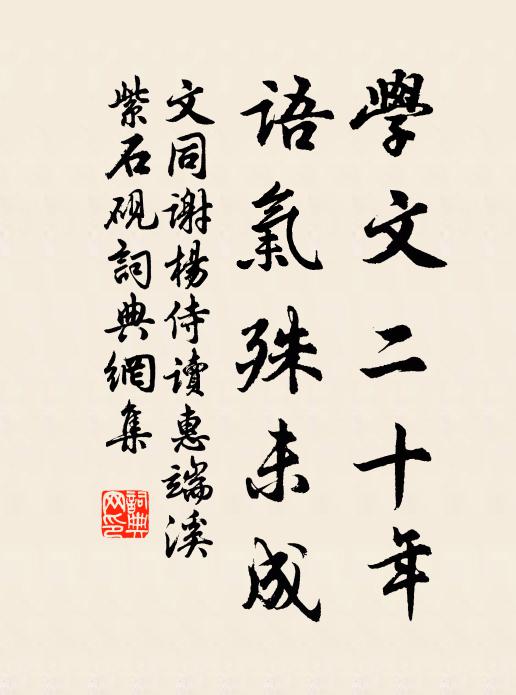 學文二十年
語氣殊未成
文同謝楊侍讀惠端溪
紫石硯詞典網集
詞典網印